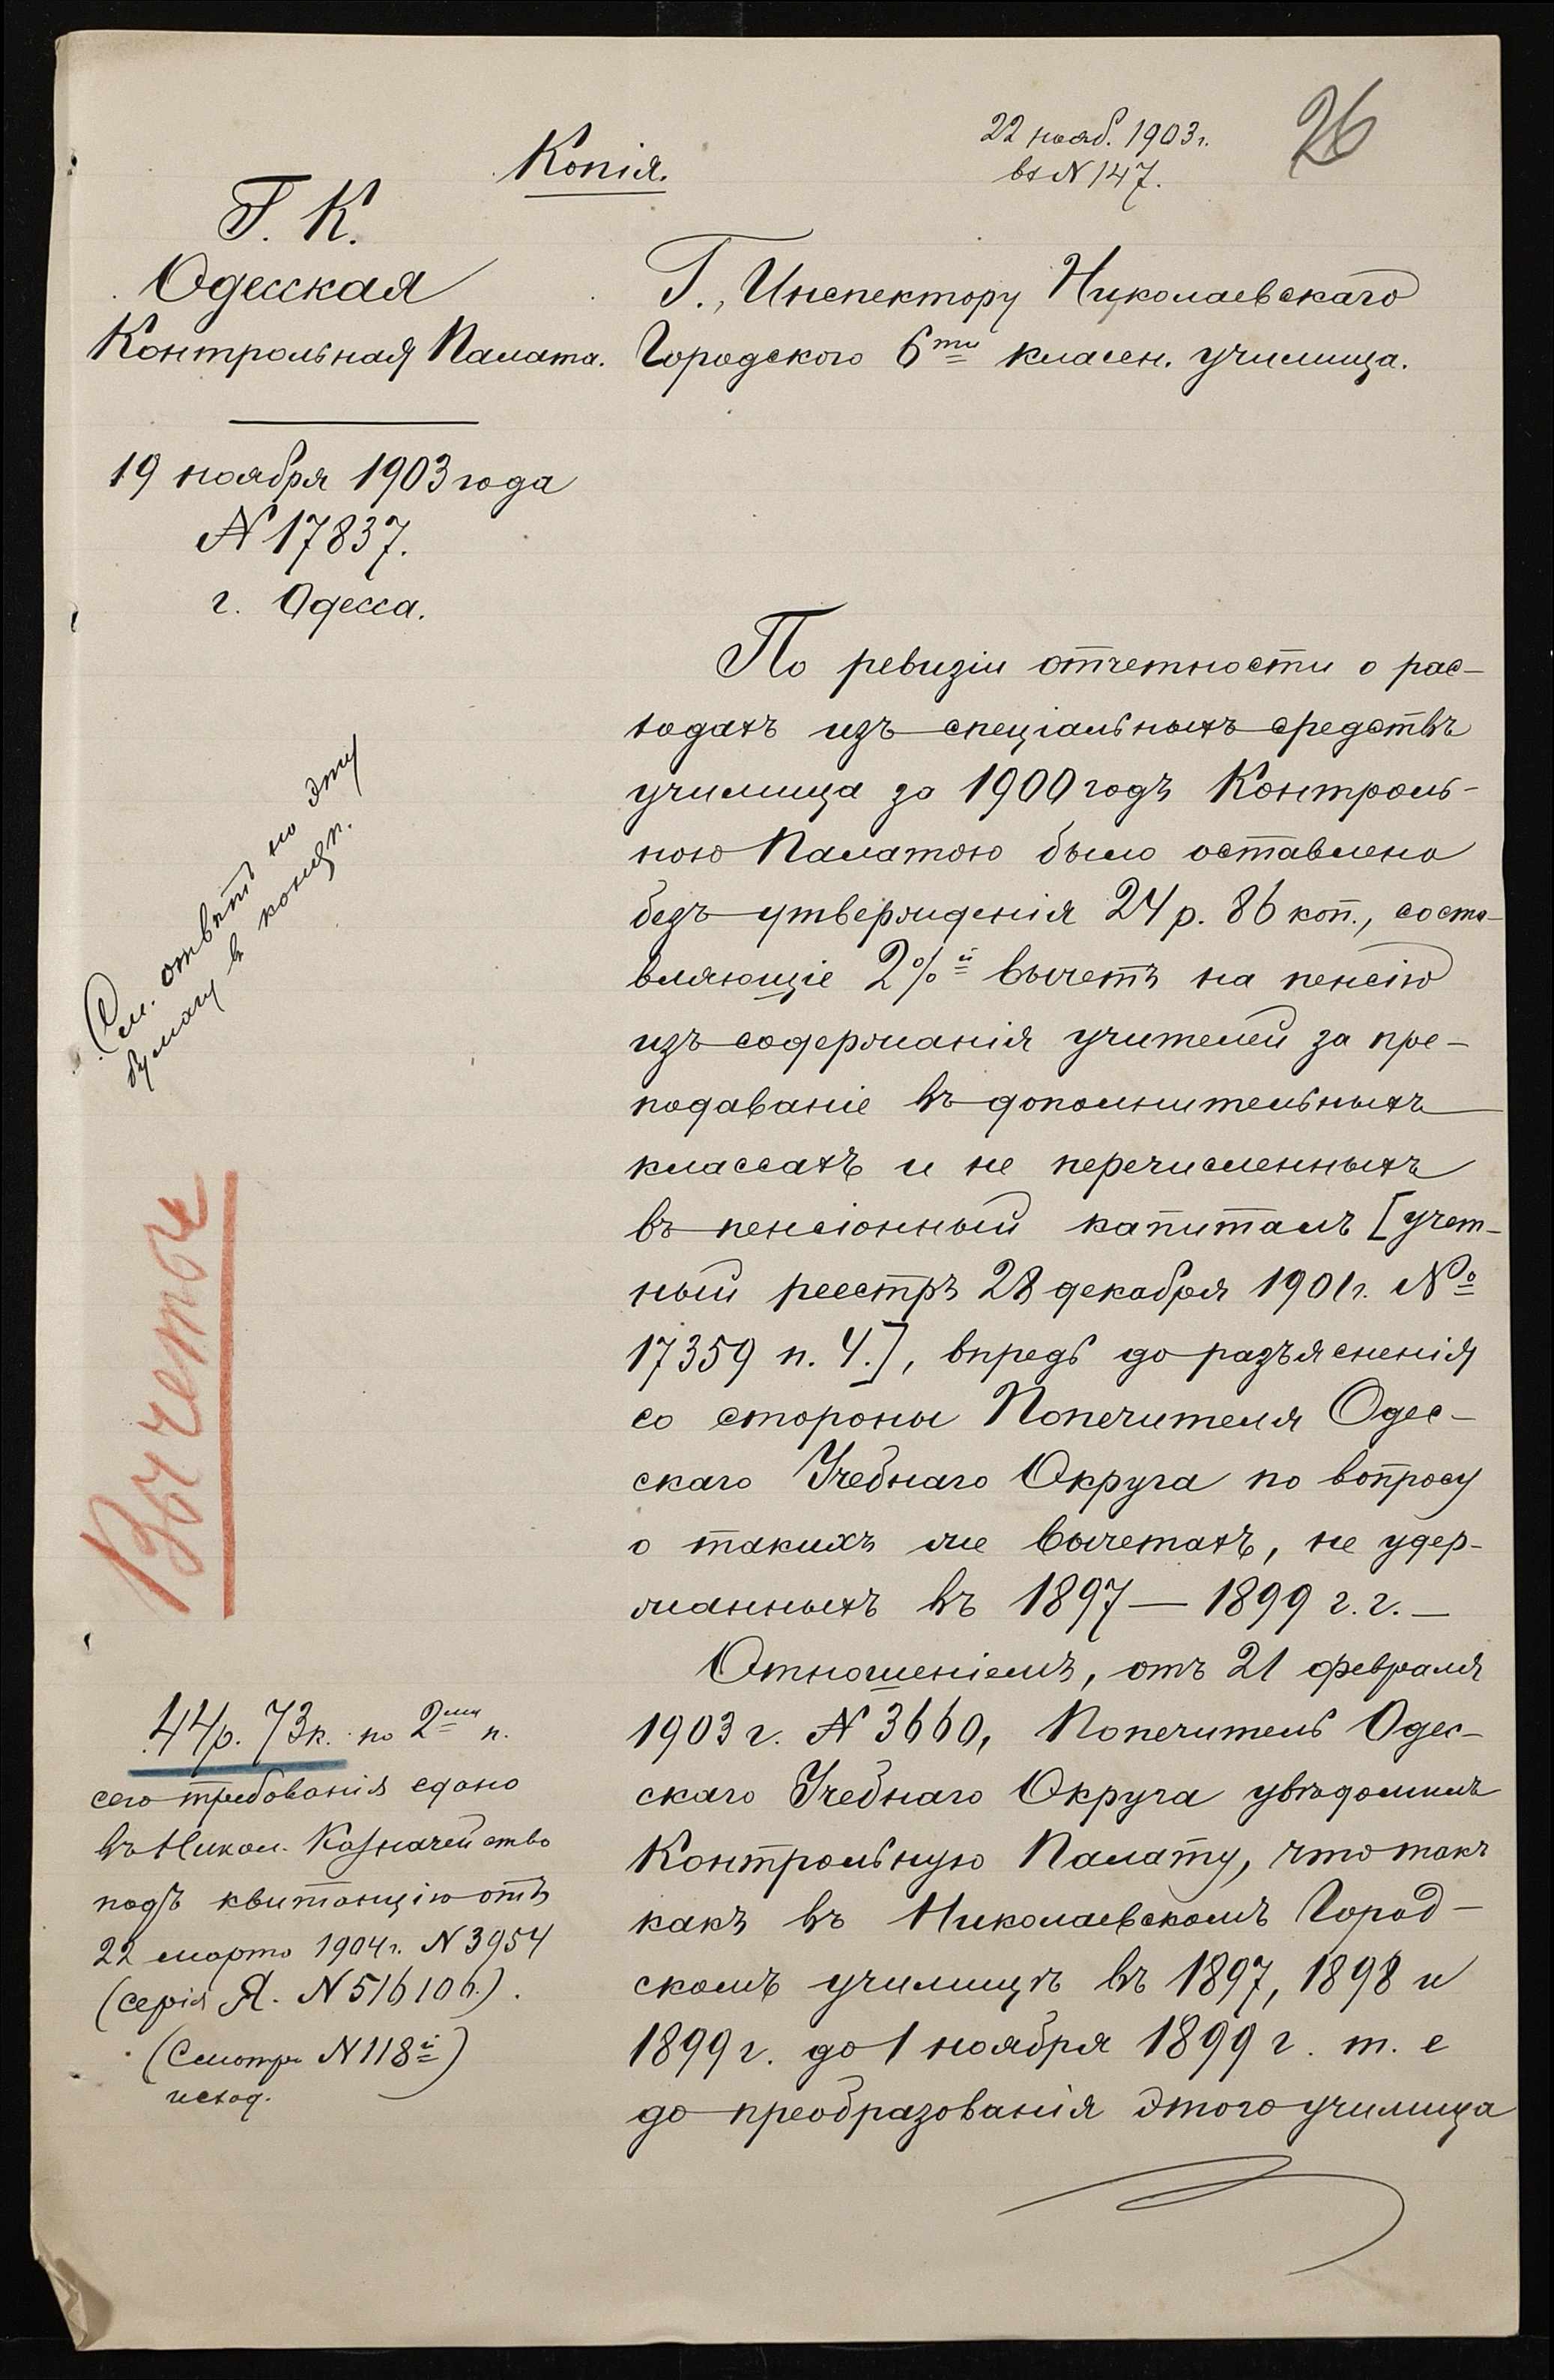 Копія.
22 нояб. 1903 г.
вх N 147.
26
Г. К.
Одесская
Контрольная Палата.
19 ноября 1903 года
N 17837.
г. Одесса.
Г., Инспектору Николаевскаго
Городского 6ти классн. училища.
См. отвѣт на эту
бумагу в концѣ.
Вычеты
По ревизіи отчетности о рас-
ходахъ изъ спеціальныхъ средствъ
училища за 1900 годъ Контроль-
ною Палатою было оставлено
безъ утвержденія 24 р. 86 коп., соста-
вляющіе 2%й вычетъ на пенсію
изъ содержанія учителей за пре-
подаваніе въ дополнительныхъ
классахъ и не перечисленныхъ
въ пенсіонный капиталъ [учет-
ный реестръ 28 декабря 1901 г. №
17359 п. 4.], впредь до разъясненія
со стороны Попечителя Одес-
скаго Учебнаго Округа по вопросу
о такихъ же вычетахъ, не удер-
жанныхъ въ 1897 — 1899 г.г. —
Отношеніемъ, отъ 21 февраля
1903 г. N 3660, Попечитель Одес-
скаго Учебнаго Округа увѣдомилъ
Контрольную Палату, что такъ
какъ въ Николаевскомъ Город-
скомъ училищѣ въ 1897, 1898 и
1899 г. до 1 ноября 1899 г. т. е
до преобразованія этого училища
44 р. 73 к. по 2му п.
сего требованія сдано
въ Никол. Казначейство
подъ квитанцію отъ
22 марта 1904 г. N 3954
(серія Я. N 516106.).
(Смотри N 118й)
исход.